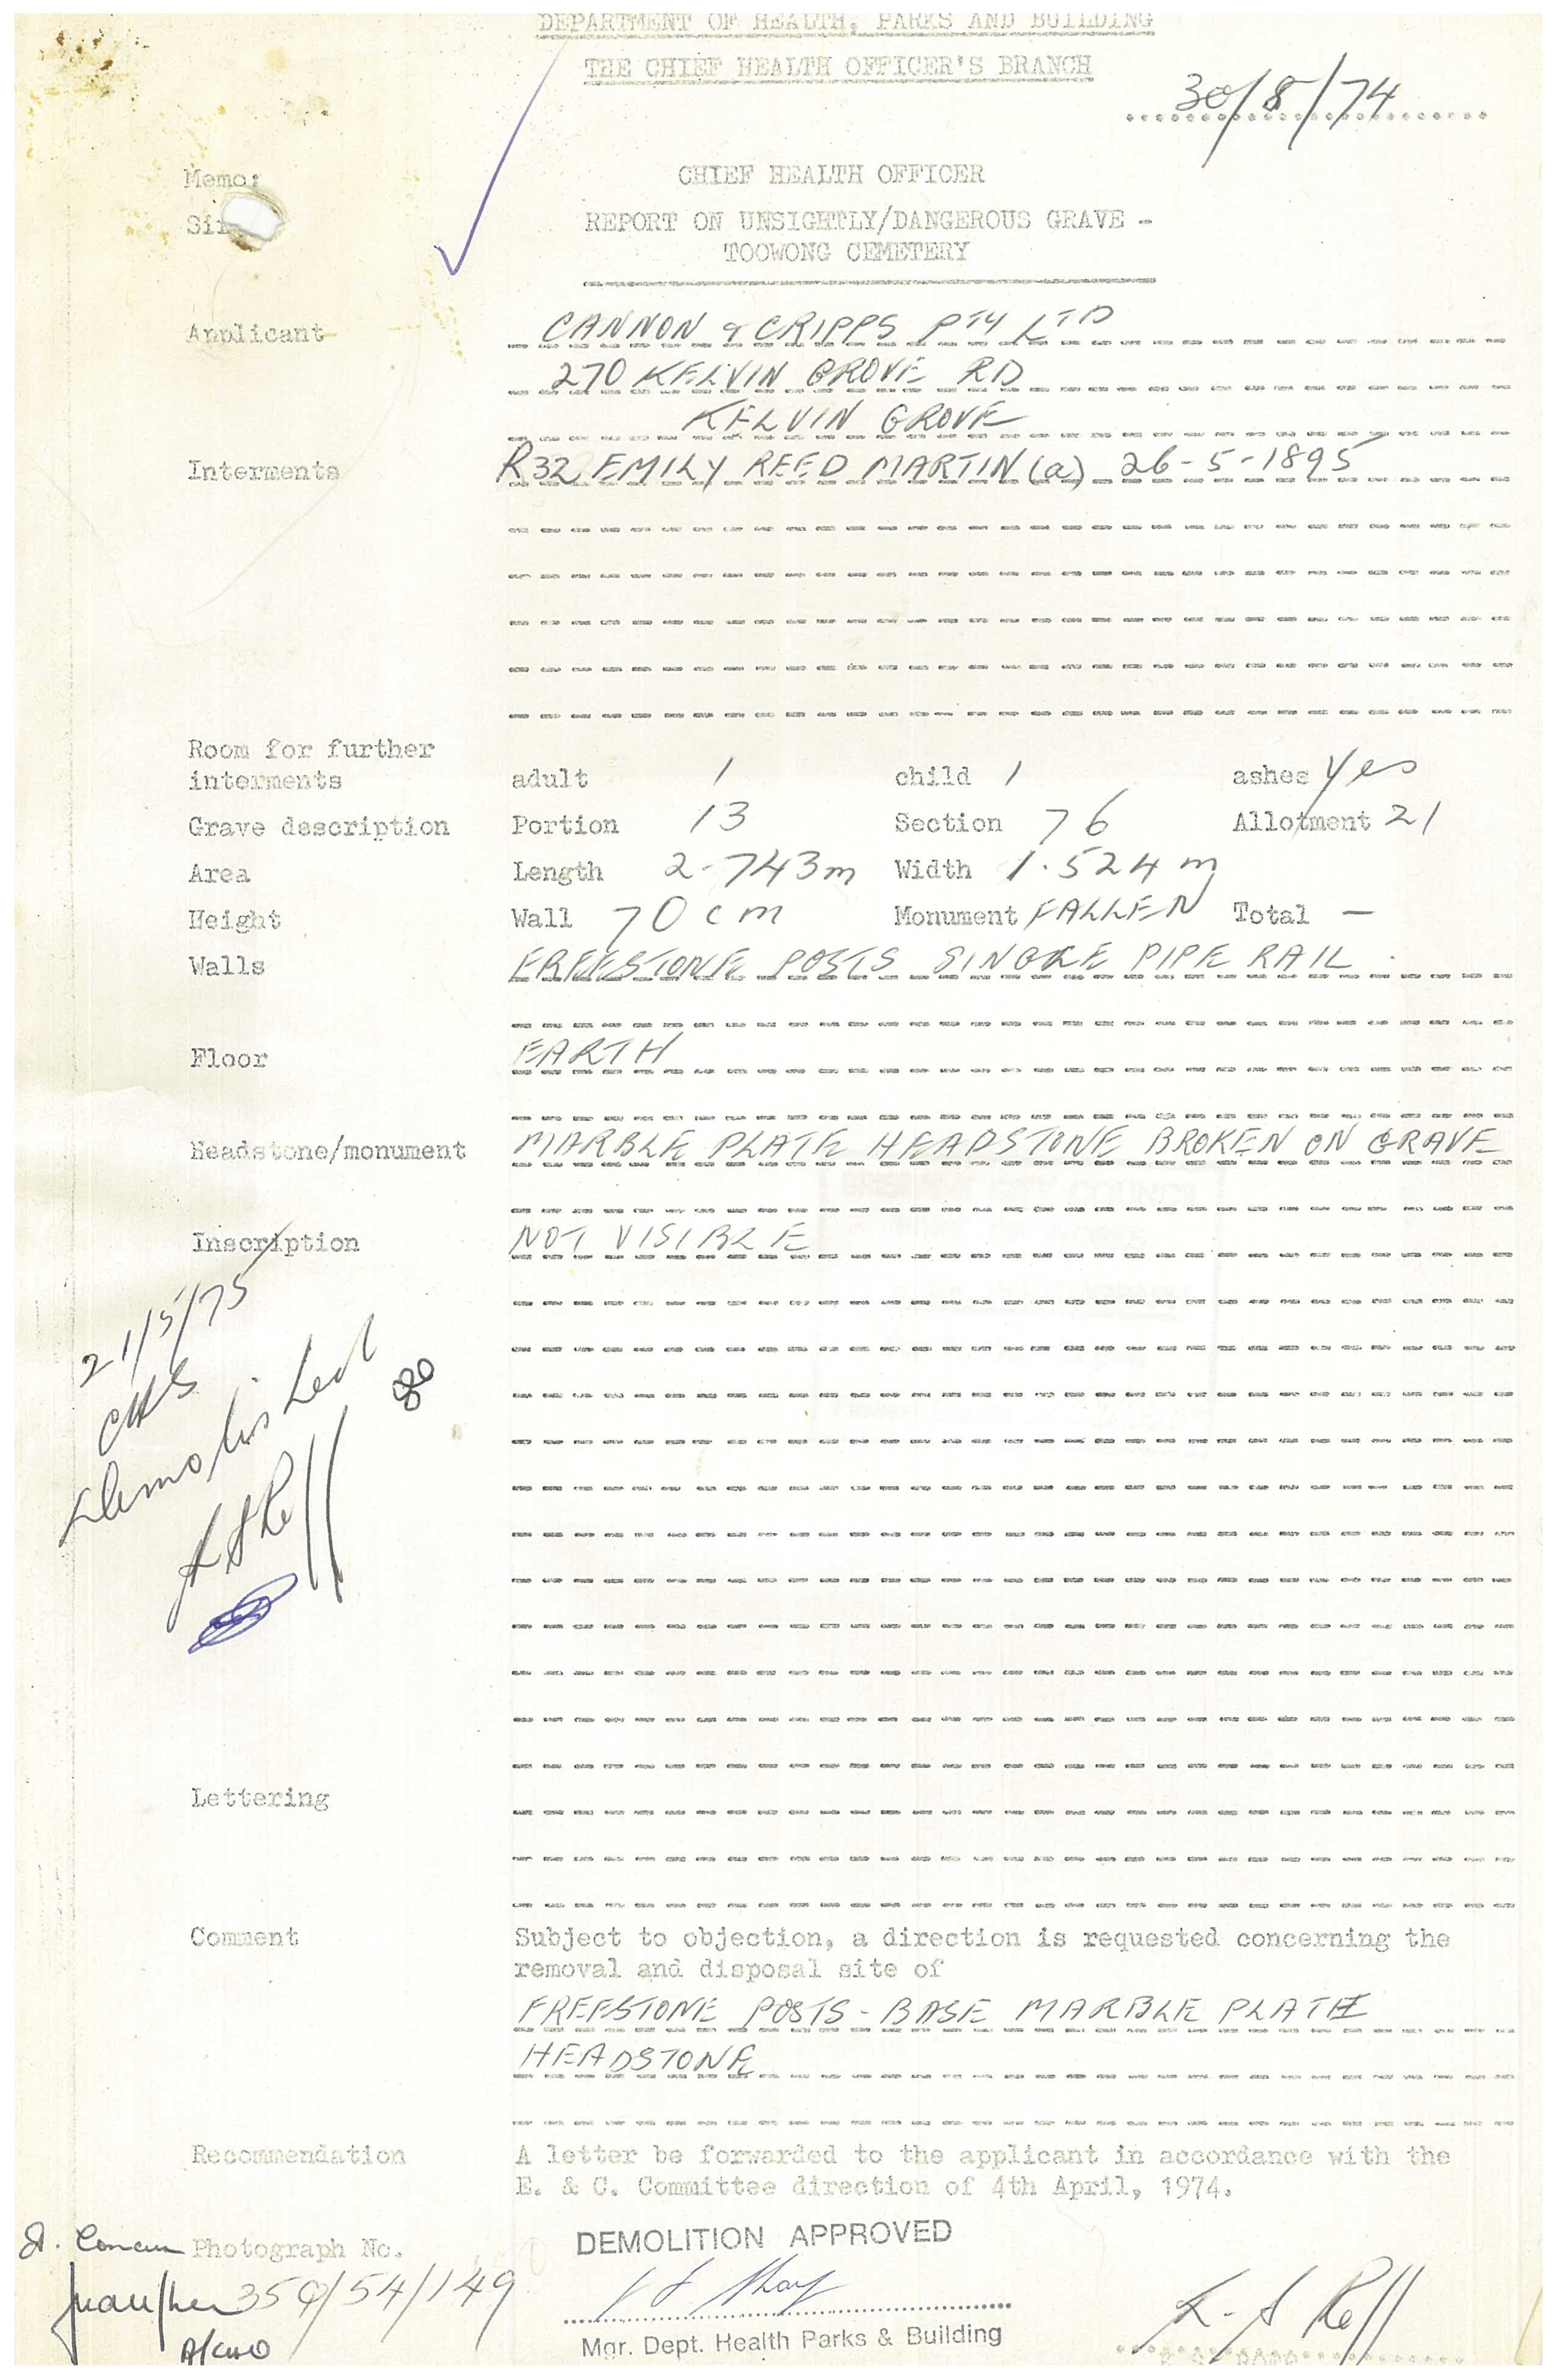 DEPARTMENT OF HEALTH, PARKS AND BUILDING
THE CHIEF HEALTH OFFICER'S BRANCH
30/8/74
Memo: CHIEF HEALTH OFFICER
REPORT ON UNSIGHTLY/DANGEROUS GRAVE -
TOOWONG CEMETERY
Applicant CANNON & CRIPPS PTY LTD
270 KELVIN GROVE RD
KELVIN GROVE
Interments R32 EMILY REED MARTIN (a) 26-5-1895
Room for further
interments adult 1 child 1 ashes Yes
Grave description Portion 13 Section 76 Allotment 21
Area Length 2.743m Width 1.524m
Height Wall 70cm Monument FALLEN Total —
Walls FREESTONE POSTS SINGLE PIPE RAIL.
Floor EARTH
Headstone/monument MARBLE PLATE HEADSTONE BROKEN ON GRAVE
Inscription NOT VISIBLE
21/5/75
Lettering
Comment Subject to objection, a direction is requested concerning the
removal and disposal site of
FREESTONE POSTS - BASE MARBLE PLATE
HEADSTONE
Recommendation A letter be forwarded to the applicant in accordance with the
E. & C. Committee direction of 4th April, 1974.
DEMOLITION APPROVED
Photograph No.
/54/149
Mgr. Dept. Health Parks & Building